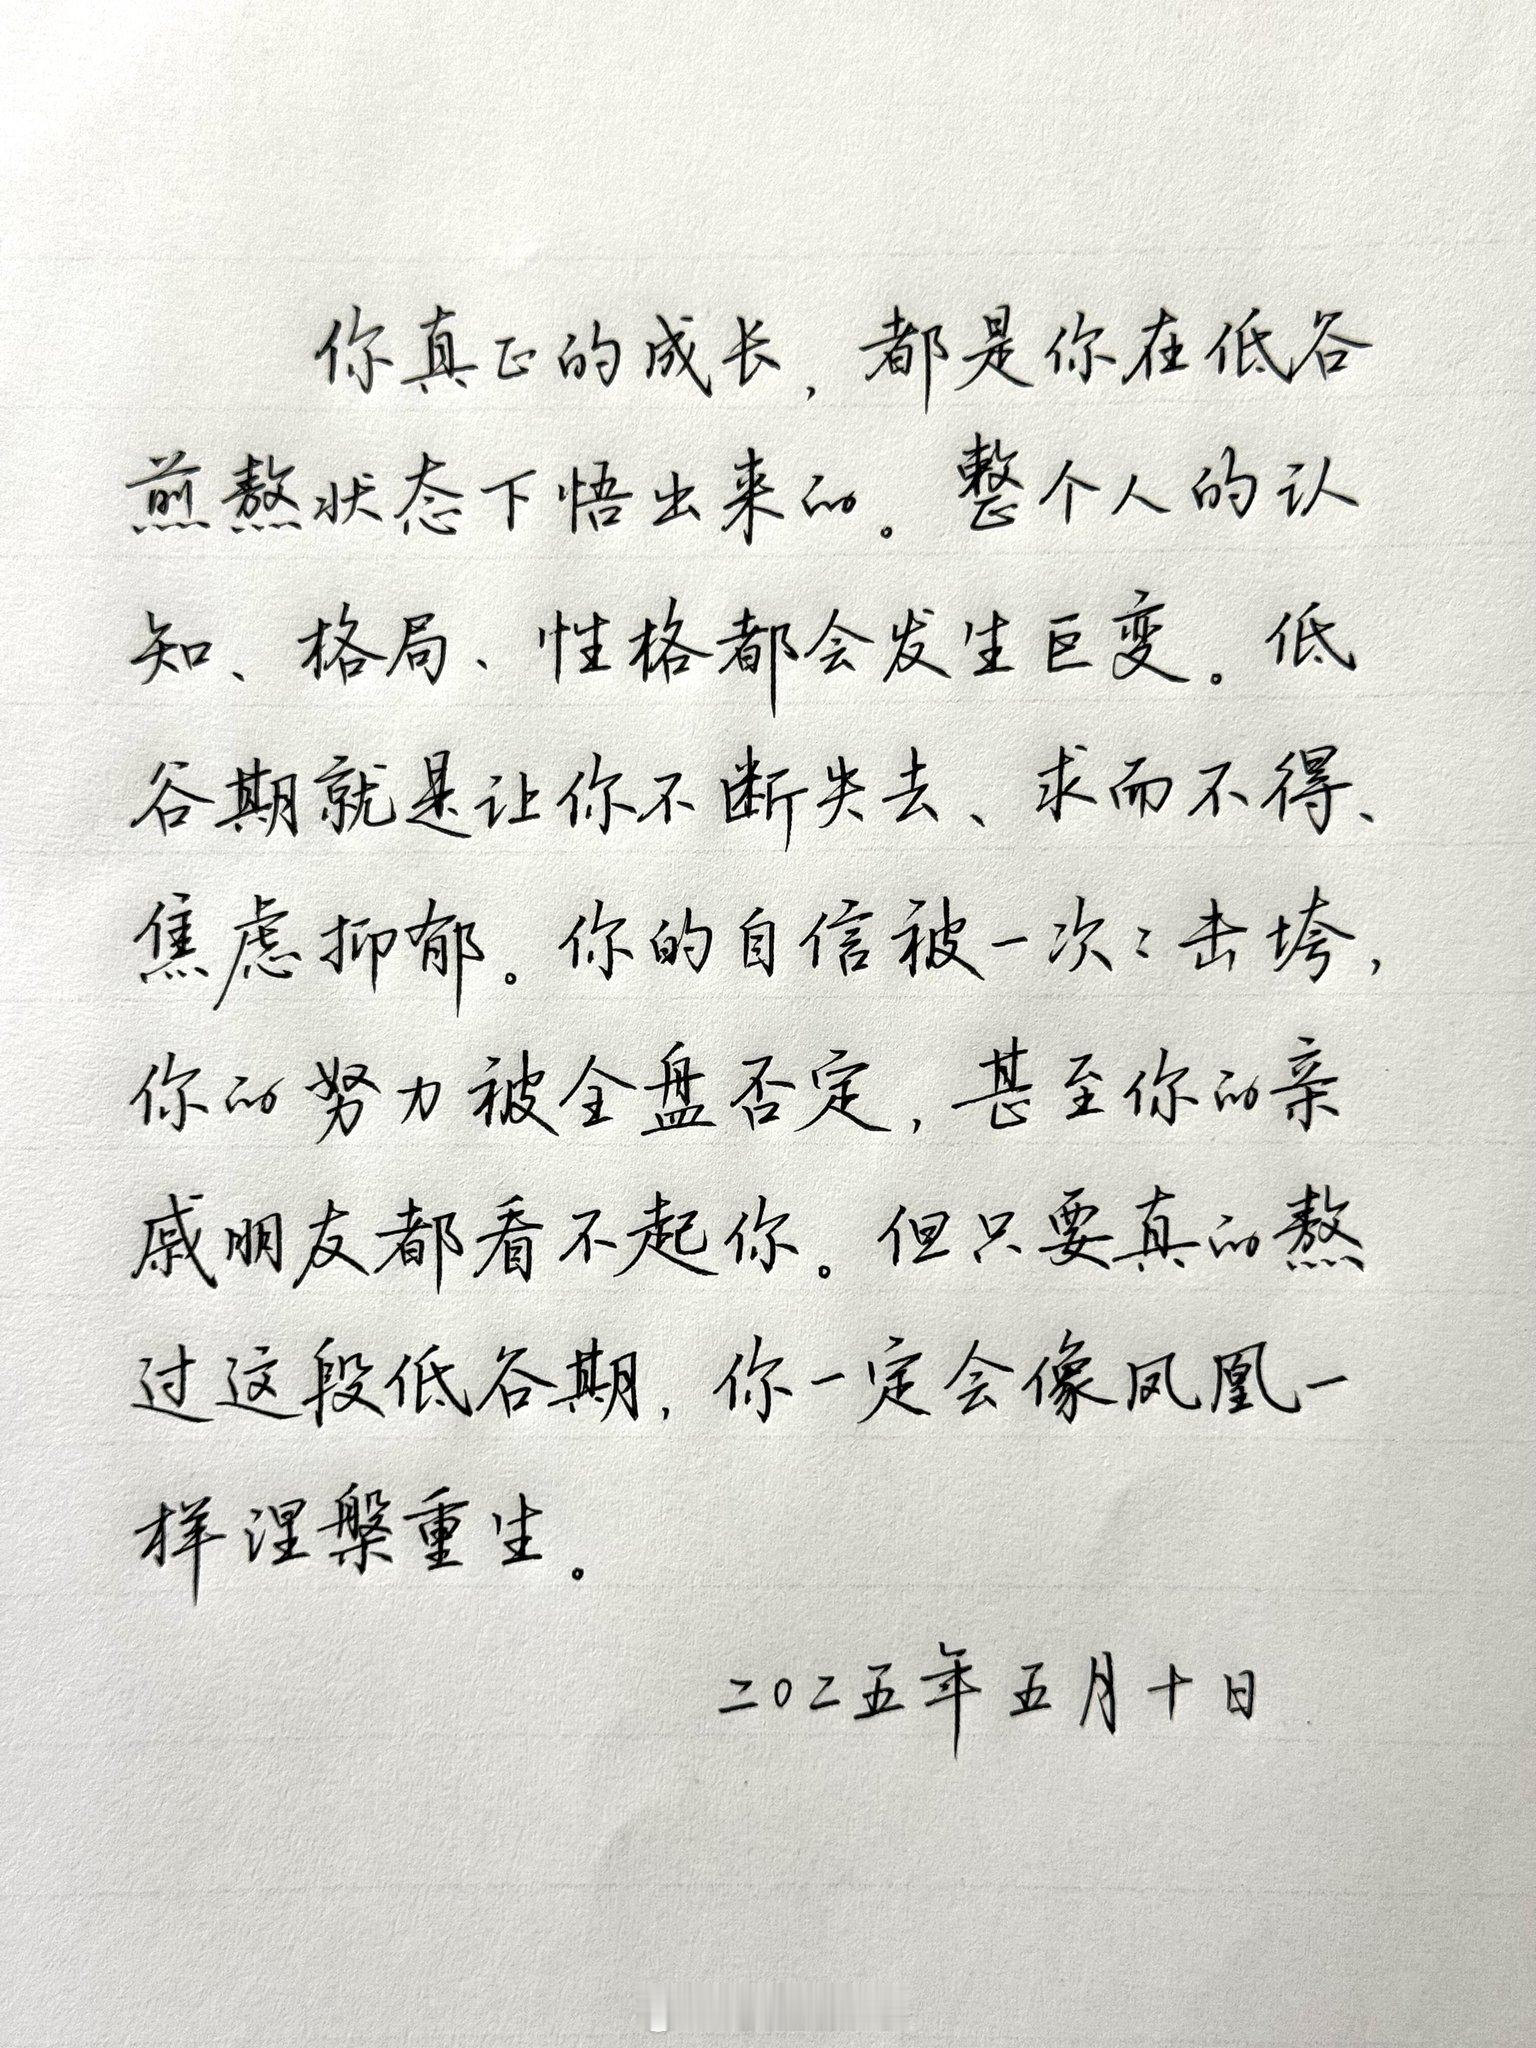 你真正的成长，都是你在低谷
煎熬状态下悟出来的。整个人的认
知、格局、性格都会发生巨变。低
谷期就是让你不断失去、求而不得、
焦虑抑郁。你的自信被一次次击垮，
你的努力被全盘否定，甚至你的亲
戚朋友都看不起你。但只要真的熬
过这段低谷期，你一定会像凤凰一
样涅槃重生。
二〇二五年五月十日